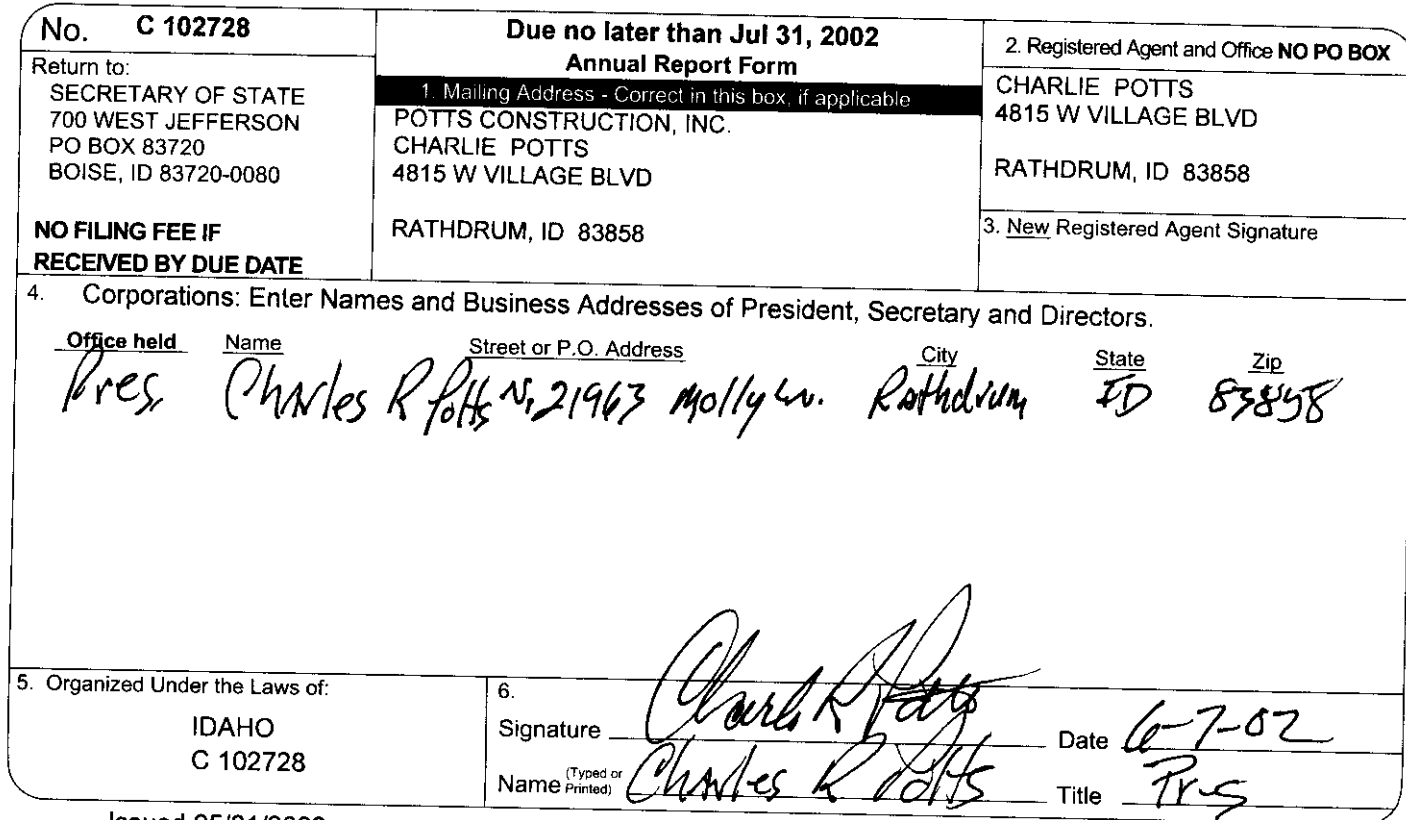 No. C 102728
Return to:
SECRETARY OF STATE
700 WEST JEFFERSON
PO BOX 83720
BOISE, ID 83720-0080
NO FILING FEE IF
RECEIVED BY DUE DATE
Due no later than Jul 31, 2002
Annual Report Form
1. Mailing Address - Correct in this box, if applicable
POTTS CONSTRUCTION, INC.
CHARLIE POTTS
4815 W VILLAGE BLVD
RATHDRUM, ID 83858
2. Registered Agent and Office NO PO BOX
CHARLIE POTTS
4815 W VILLAGE BLVD
RATHDRUM, ID 83858
3. New Registered Agent Signature
4. Corporations: Enter Names and Business Addresses of President, Secretary and Directors.
Office held Name Street or P.O. Address City State Zip
Pres. Charles R Potts N. 21963 Molly Ln. Rathdrum ID 83858
5. Organized Under the Laws of:
IDAHO
C 102728
6.
Signature Charles R Potts Date 6-7-02
Name (Typed or Printed) Charles R Potts Title Pres